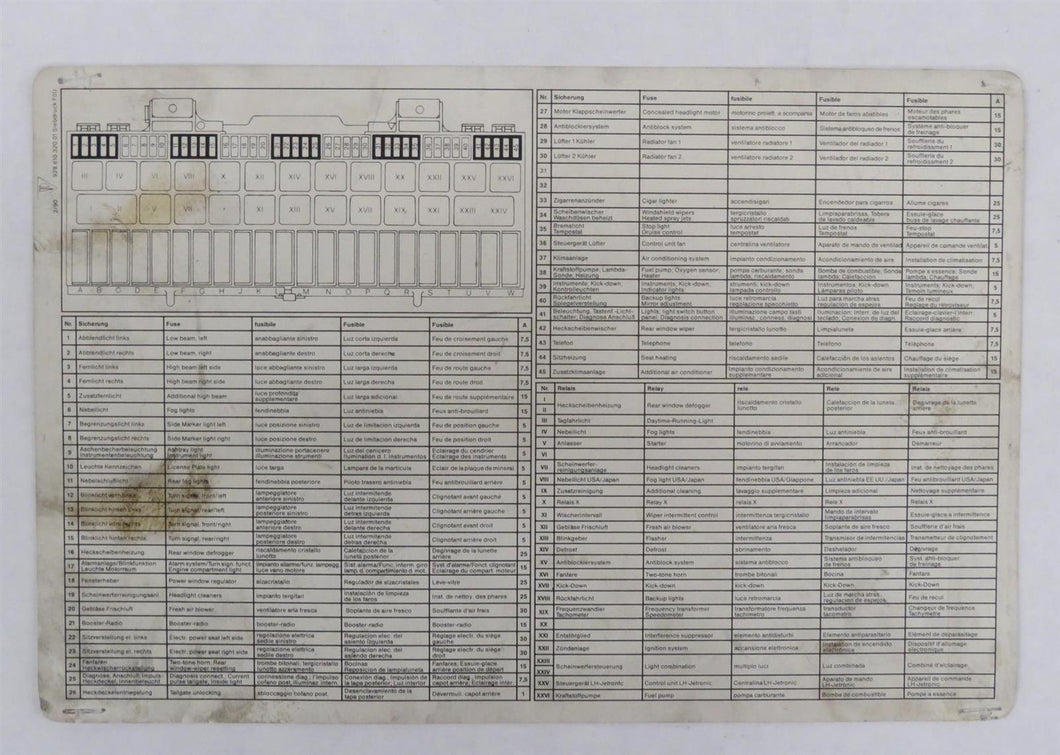 928 610 320 01 Siebdruck
2/90
III IV VI VIII X XII XIV XVI XVIII XX XXI XXV XXVI
I II V VII XI XIII XV XVII XIX XX XXIII XXIV
A B C D E F G H J K L M N O P Q R S T U V W
Nr. Sicherung Fuse fusibile Fusible Fusible A
1 Abblendlicht links Low beam, left anabbagliante sinistro Luz corta izquierda Feu de croisement gauche 7,5
2 Abblendlicht rechts Low beam, right anabbagliante destro Luz corta derecha Feu de croisement droit 7,5
3 Fernlicht links High beam left side luce abbagliante sinistro Luz larga izquierda Feu de route gauche 7,5
4 Fernlicht rechts High beam right side luce abbagliante destro Luz larga derecha Feu de route droit 7,5
5 Zusatzfernlicht Additional high beam luce profondita supplementare Luz larga adicional Feu de route supplémentaire 15
6 Nebellicht Fog lights fendinebbia Luz antiniebla Feux anti-brouillard 15
7 Begrenzungslicht links Side Marker light left luce posizione sinistro Luz de limitacion izquierda Feu de position gauche 5
8 Begrenzungslicht rechts Side Marker light right luce posizione destro Luz de limitacion derecha Feu de position droit 5
9 Aschenbecherbeleuchtung Instrumentenbeleuchtung Ashtray light Instrument light illuminazione portacenere illuminazione strumenti Luz del cenicero Illumination d. l. instrumentos Eclairage du cendrier Eclairage des instruments 5
10 Leuchte Kennzeichen License Plate light luce targa Lampara de la matricula Eclair de la plaque de mineral. 5
11 Nebelschlußlicht Rear fog lights fendinebbia posteriore Piloto trasero antiniebla Feu antibrouillard arrière 5
12 Blinklicht vorn links Turn signal, front left lampeggiatore anteriore sinistro Luz intermitente delantera izquierda Clignotant avant gauche 5
13 Blinklicht hinten links Turn signal, rear/left lampeggiatore posteriore sinistro Luz intermitente detras izquierda Clignotant arrière gauche 5
14 Blinklicht vorn rechts Turn signal, front/right lampeggiatore anteriore destro Luz intermitente delante derecha Clignotant avant droit 5
15 Blinklicht hinten rechts Turn signal, rear/right lampeggiatore posteriore destro Luz intermitente detras derecha Clignotant arrière droit 5
16 Heckscheibenheizung Rear window defogger riscaldamento cristallo lunotto Calefaccion de la luneta posterior Dégivrage de la lunette arrière 25
17 Alarmanlage/Blinkfunktion Leuchte Motorraum Alarm system/Turn sign. funct. Engine compartment light Impianto allarme/funz. lampegg. luce vano motore Sist. alarma/Func. interm. giro lamp. d. compartimiento d. mot. Syst d'alarme/Fonct. clignotant Eclairage du compart. moteur 15
18 Fensterheber Power window regulator alzacristallo Regulador de alzacristales Lève-vitre 25
19 Scheinwerferreinigungsanl. Headlight cleaners impianto tergifari Instalación de limpieza de los faros Inst. de nettoy. des phares 25
20 Gebläse Frischluft Fresh air blower ventilatore aria fresca Soplante de aire fresco Soufflante d'air frais 30
21 Booster-Radio Booster-radio booster-radio Booster-radio Booster-radio 15
22 Sitzverstellung el. links Electr. power seat left side regolazione elettrica sedile sinistro Regulacion elec. del asiento izquierdo Réglage electr. du siège gauche 30
23 Sitzverstellung el. rechts Electr. power seat right side regolazione elettrica sedile destro Regulacion elec. del asiento derecha Réglage electr. du siège droit 30
24 Fanfaren Heckwischerrückstellung Two-tone horn; Rear window-wiper resetting trombe bitonali, tergicristallo lunotto azzeramento Bocinas Reposicion de limpialuneta Fanfares; Essuie-glace arrière position de départ 15
25 Diagnose, Anschluß; Impuls-Heckdeckel, Innenleucht. Diagnosis connect.; Current pulse tailgate, Inside light connessione diag.; l'impulso cofano post. illuminaz. intern. Conexión diag.; Impulsión de la tapa posterior; Luz interior Raccord diag.; Impulsion capot arrière, Eclairage intér. 7,5
26 Heckdeckelentriegelung Tailgate unlocking sbloccaggio cofano post. Desenclavamiento de la tapa posterior Dévermouil. capot arrière 1
Nr. Sicherung Fuse fusibile Fusible Fusible A
27 Motor Klappscheinwerfer Concealed headlight motor motorino proiett. a scomparsa Motor de faros abatibles Moteur des phares escamotables 15
28 Antiblockiersystem Antiblock system sistema antiblocco Sistema antibloqueo de frenos Système anti-bloquer de freinage 15
29 Lüfter 1 Kühler Radiator fan 1 ventilatore radiatore 1 Ventilador del radiador 1 Soufflerie du refroidissment 1 30
30 Lüfter 2 Kühler Radiator fan 2 ventilatore radiatore 2 Ventilador del radiador 2 Soufflerie du refroidissment 2 30
31
32
33 Zigarrenanzünder Cigar lighter accendisigari Encendedor para cigarros Allume cigares 25
34 Scheibenwischer Waschdüsen beheizt Windshield wipers Heated spray jets tergicristallo spruzzatori riscaldati Limpiaparabrisas, Tobera de lavado caldeable Essuie-glace buse de lavage chauffante 25
35 Bremslicht Tempostat Stop light Cruise control luce arresto tempostat Luz de frenos Tempostat Feu-stop Tempostat 7,5
36 Steuergerät Lüfter Control unit fan centralina ventilatore Aparato de mando de ventilad Appareil de commande ventilat. 5
37 Klimaanlage Air conditioning system impianto condizionamento Acondicionamiento de aire Installation de climatisation 7,5
38 Kraftstoffpumpe, Lambda-Sonde, Heizung Fuel pump; Oxygen sensor; Heater pompa carburante, sonda lambda, riscaldamento Bomba de combustible; Sonda lambda; Calefaccion Pompe a'essence; Sonde lambda, Chauffage 15
39 Instrumente, Kick-down, Kontrolleuchten Instruments; Kick-down; Indicator lights strumenti, kick-down lampada controllo Instrumentos; Kick-down; Lámparas piloto Instruments; Kick-down; Temoin lumineux 5
40 Rückfahrlicht Spiegelverstellung Backup lights Mirror adjustment luce retromarcia regolazione specchietto Luz para marcha atras regulación de espejos Feu de recul Réglage du rétroviseur 7,5
41 Beleuchtung, Tastenf.-Licht-schalter; Diagnose Anschluß Lights; light switch button panel, Diagnosis connection illuminazione campo tasti illuminaz. conness. diagnosi Iluminacion: Interr. de luz del teclado; Conexion de diagn. Eclairage-clavier-l'interr. Raccord diagnostic 5
42 Heckscheibenwischer Rear window wiper tergicristallo lunotto Limpialuneta Essuie-glace arrière 7,5
43 Telefon Telephone telefono Telefono Téléphone 7,5
44 Sitzheizung Seat heating riscaldamento sedile Calefacción de los asientos Chauffage du siège 15
45 Zusatzklimaanlage Additional air conditioner Impianto condizionamento supplementare Acondicionamiento de aire adicional Installation de climatisation supplémentaire 15
Nr. Relais Relay rele Rele Relais
I II Heckscheibenheizung Rear window defogger riscaldamento cristallo lunotto Calefaccion de la luneta posterior Dégivrage de la lunette arrière
III Tagfahrlicht Daytime-Running-Light
IV Nebellicht Fog lights fendinebbia Luz antiniebla Feux anti-brouillard
V Anlasser Starter motorino di avviamento Arrancador Démarreur
VI
VII Scheinwerfer-reinigungsanlage Headlight cleaners impianto tergifari Instalación de limpieza de los faros Inst. de nettoyage des phares
VIII Nebellicht USA/Japan Fog light USA/Japan fendinebbia USA/Giappone Luz antiniebla EE.UU./Japan Feu antibrouillard USA/Japan
IX Zusatzreinigung Additional cleaning lavaggio supplementare Limpieza adicional Nettoyage supplémentaire
X Relais X Relay X Relais X Rele X Relais X
XI Wischerintervall Wiper intermittent control intermittenza tergicristallo Mando de intervalo limpiaparabrisas Essuie-glace à intermittence
XII Gebläse Frischluft Fresh air blower ventilatore aria fresca Soplante de aire fresco Soufflerie d'air frais
XIII Blinkgeber Flasher intermittenza Transmisor de intermitencias Transmetteur de clignotement
XIV Defrost Defrost sbrinamento Deshelador Dégivrage
XV Antiblockiersystem Antiblock system sistema antiblocco Sistema antibloqueo de frenos Syst. anti-bloquer de freinage
XVI Fanfare Two-tone horn trombe bitonali Bocina Fanfare
XVII Kick-Down Kick-down kick-down Kick-Down Kick-Down
XVIII Rückfahrlicht Backup lights luce retromarcia Luz de marcha atras, regulacion de espejos Feu de recul
XIX Frequenzwandler Tachometer Frequency transformer Speedometer transformatore frequenza tachimetro transductor tacometro Changeur de frequence Tachymetre
XX
XXI Entstörglied Interference suppressor elemento antidisturbi Elemento antiparasitario Element de déparasitage
XXII Zündanlage Ignition system accensione elettronica Instalación de encendido electrónica Dispositif d'allumage electronique
XXIII XXIV Scheinwerfersteuerung Light combination multiplo luci Luz combinada Combiné d'éclairage
XXV Steuergerät LH-Jetronic Control unit LH-Jetronic Centralina LH-Jetronic Aparato de mando LH-Jetronic Appareil de commande LH-Jetronic
XXVI Kraftstoffpumpe Fuel pump pompa carburante Bomba de combustible Pompe a essence